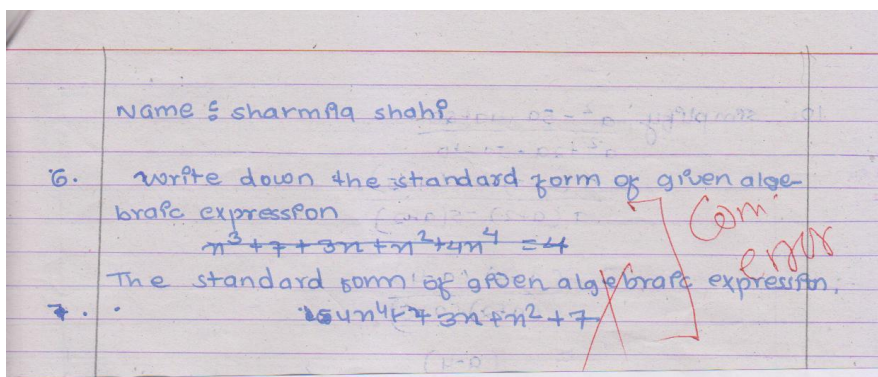 Name : sharmila shahi
6. write down the standard form of given alge-
braic expression
x³ + 7 + 3x + x² + 4x⁴ = 4
The standard form of given algebraic expression,
7. is 4x⁴ + 3x + x² + 7
Com.
error